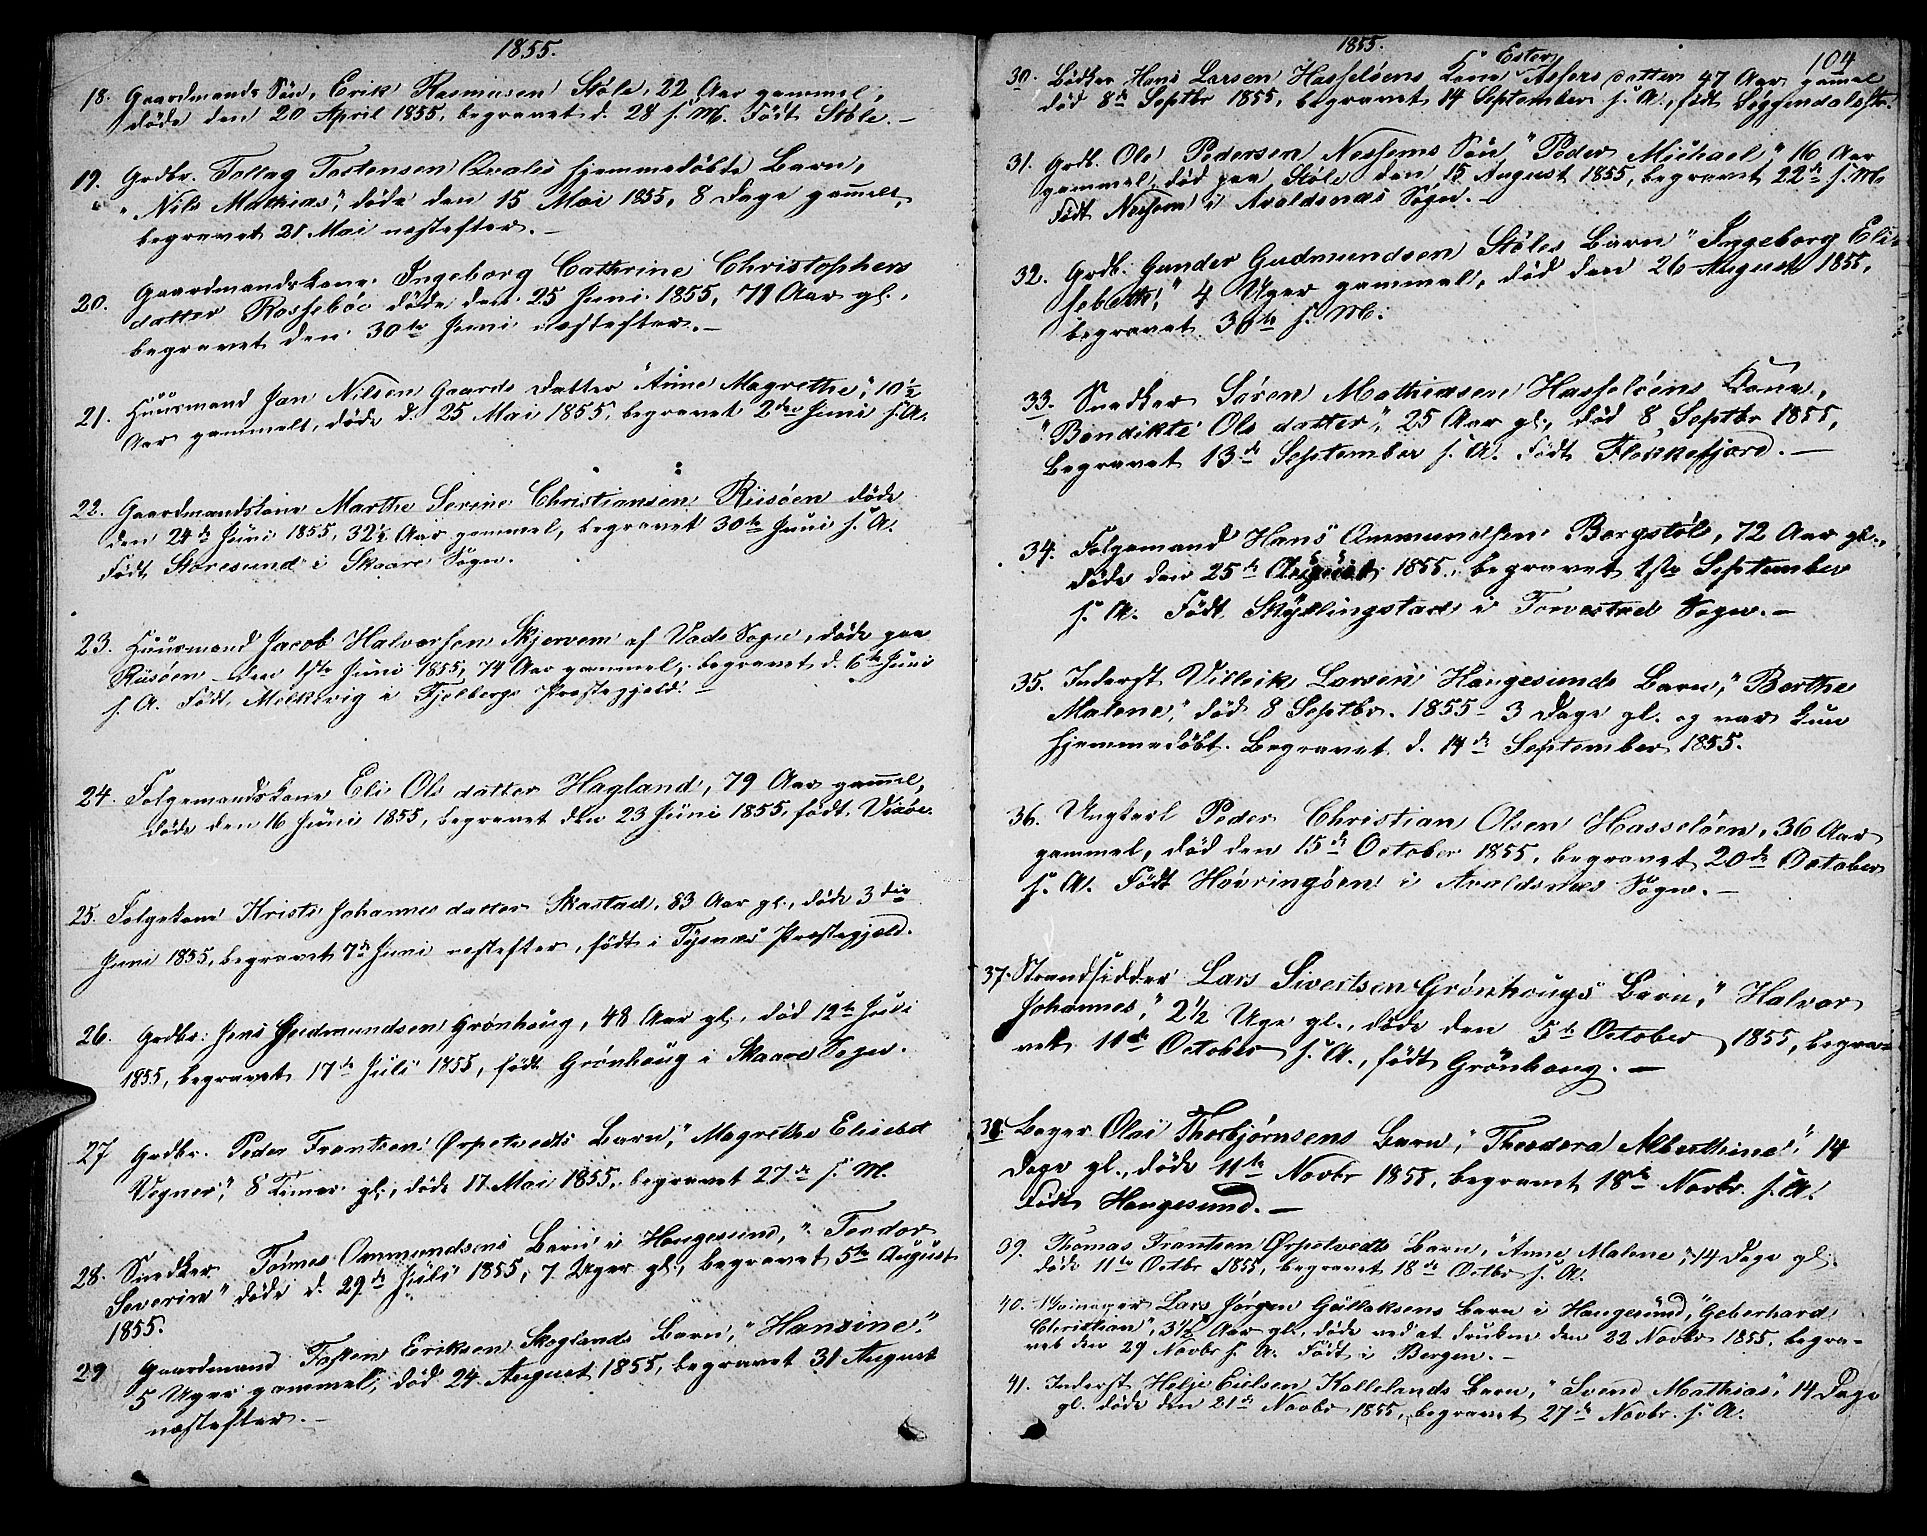 1855.
18. Gaardmands Søn, Erik Rasmusen Støle, 22 Aar gammel,
døde den 20 April 1855, begravet d. 28 s. M. Født Støle. –
19. Grdbr. Tollag Tostensen Qvales hjemmedøbte Barn,
"Nils Mathias", døde den 15 Mai 1855, 8 Dage gamelt,
begravet 21 Mai nestefter. –
20. Gaardmandskone Ingeborg Cathrine Christophers
datter Rossebøe døde den 25 Juni 1855, 79 Aar gl.,
begravet den 30te Juni nestefter. –
21. Huusmand Jan Nilsen Gaards Datter "Anne Magrethe", 10 1/2
Aar gammelt, døde d. 25 Mai 1855, begravet 2den Juni s. A.
22. Gaardmandskone Marthe Serine Christiansen Riisøen døde
den 24de Juni 1855, 32 1/2 Aar gammel, begravet 30te Juni s. A.
Født Storesund i Skaare Sogn.
23. Huusmand Jacob Halvorsen Skjervem af Vads Sogn, døde paa
Riisøen den 1ste Juni 1855, 74 Aar gammel, begravet d. 6te Juni
s. A. Født Mælkevig i Fjelbergs Prestegjeld. –
24. Følgemandskone Eli Ols datter Hagland, 79 Aar gamel,
døde den 16 Juni 1855, begravet den 23 Juni 1855, født Vixøe.
25. Følgekone Kristi Johannes datter Skastad, 83 Aar gl., døde 3die
Juni 1855, begravet 7de Juni nestefter, født i Tysnæs Prestegjeld.
26. Grdbr: Jens Gudmundsen Grønhoug, 48 Aar gl., død 12te Juli
1855, begravet 17de Juli 1855, født Grønhoug i Skaare Sogn.
27 Grdbr. Peder Frantsen Ørpetvedts Barn, "Magrethe Elisebet
Vegner", 8 Timer gl., døde 17 Mai 1855, begravet 27de s. M.
28. Snedker Tønnes Ommundsens Barn i Hougesund, "Teodor
Severin" døde d. 29de Juli 1855, 7 Uger gl., begravet 5te August
1855.
29 Gaardmand Tosten Eriksen Skoglands Barn, "Hansine",
5 Uger gammel, død 24 August 1855, begravet 31 August
nestefter. –
1855.
104
30. Bødker Hans Larsen Hasseløens Kone Ester Assers datter 47 Aar gamel
død 8de Septbr 1855, begravet 14 September s. A., født Siggendalsstr.
31. Grdb. Ole Pedersen Nessems Søn "Peder Michael", 16 Aar
gammel, død paa Støle den 15 August 1855, begravet 22de s. M.
Født Nessem i Avaldsnæs Sogn. –
32. Grdb. Gunder Gudmundsen Støles Barn "Ingeborg Eli-
sebeth," 4 Uger gammel, død den 26 August 1855,
begravet 30te s. M.
33. Snedker Søren Mathiasen Hasseløens Kone,
"Bendikte Ols datter", 25 Aar gl., død 8 Septbr 1855,
Begravet 13de September s. A. Født Flekkefjord. –
34. Følgemand Hans Ommundsen Bergstøl, 72 Aar gl.,
døde den 25de August 1855, begravet 1ste September
s. A. Født Skyllingstad i Torvestad Sogn. –
35. Inderst Villeik Larsen Hougesunds Barn, "Berthe
Malene", død 8 Septbr. 1855 – 3 Dage gl. og var kun
hjemmedøbt. Begravet d. 14de September 1855.
36. Ungkarl Peder Christian Olsen Hasseløen, 36 Aar
gammel, død den 15de October 1855, begravet 20de October
s. A. Født Høvringøen i Avaldsnæs Sogn. –
37. Strandsidder Lars Sivertsen Grønhougs Barn, "Halvor
Johannes", 2 1/2 Uge gl., døde den 5te October 1855, begra-
vet 11te October s. A., født Grønhoug. –
38. Bager Olai Thorbjørnsens Barn, "Theodora Alberthine", 14
Dage gl., døde 11te Novbr 1855, begravet 18de Novbr. s. A.
Født Hougesund. –
39. Thomas Frantsen Ørpetvedts Barn, "Anne Malene", 14 Dage gl.
døde 11te Octbr 1855, begravet 18de Octbr s. A.
40. Lars Jørgen Gullaksens Barn i Hougesund, "Geberhard
Christian", 3 1/2 Aar gl., døde ved at drukne den 22 Novbr 1855, begra-
vet den 29 Novbr s. A. Født i Bergen. –
41. Inderst Helje Eielsen Kallelands Barn, "Svend Mathias", 14 Dage
gl. døde den 21de Novbr 1855, begravet 27de Novbr. s. A.